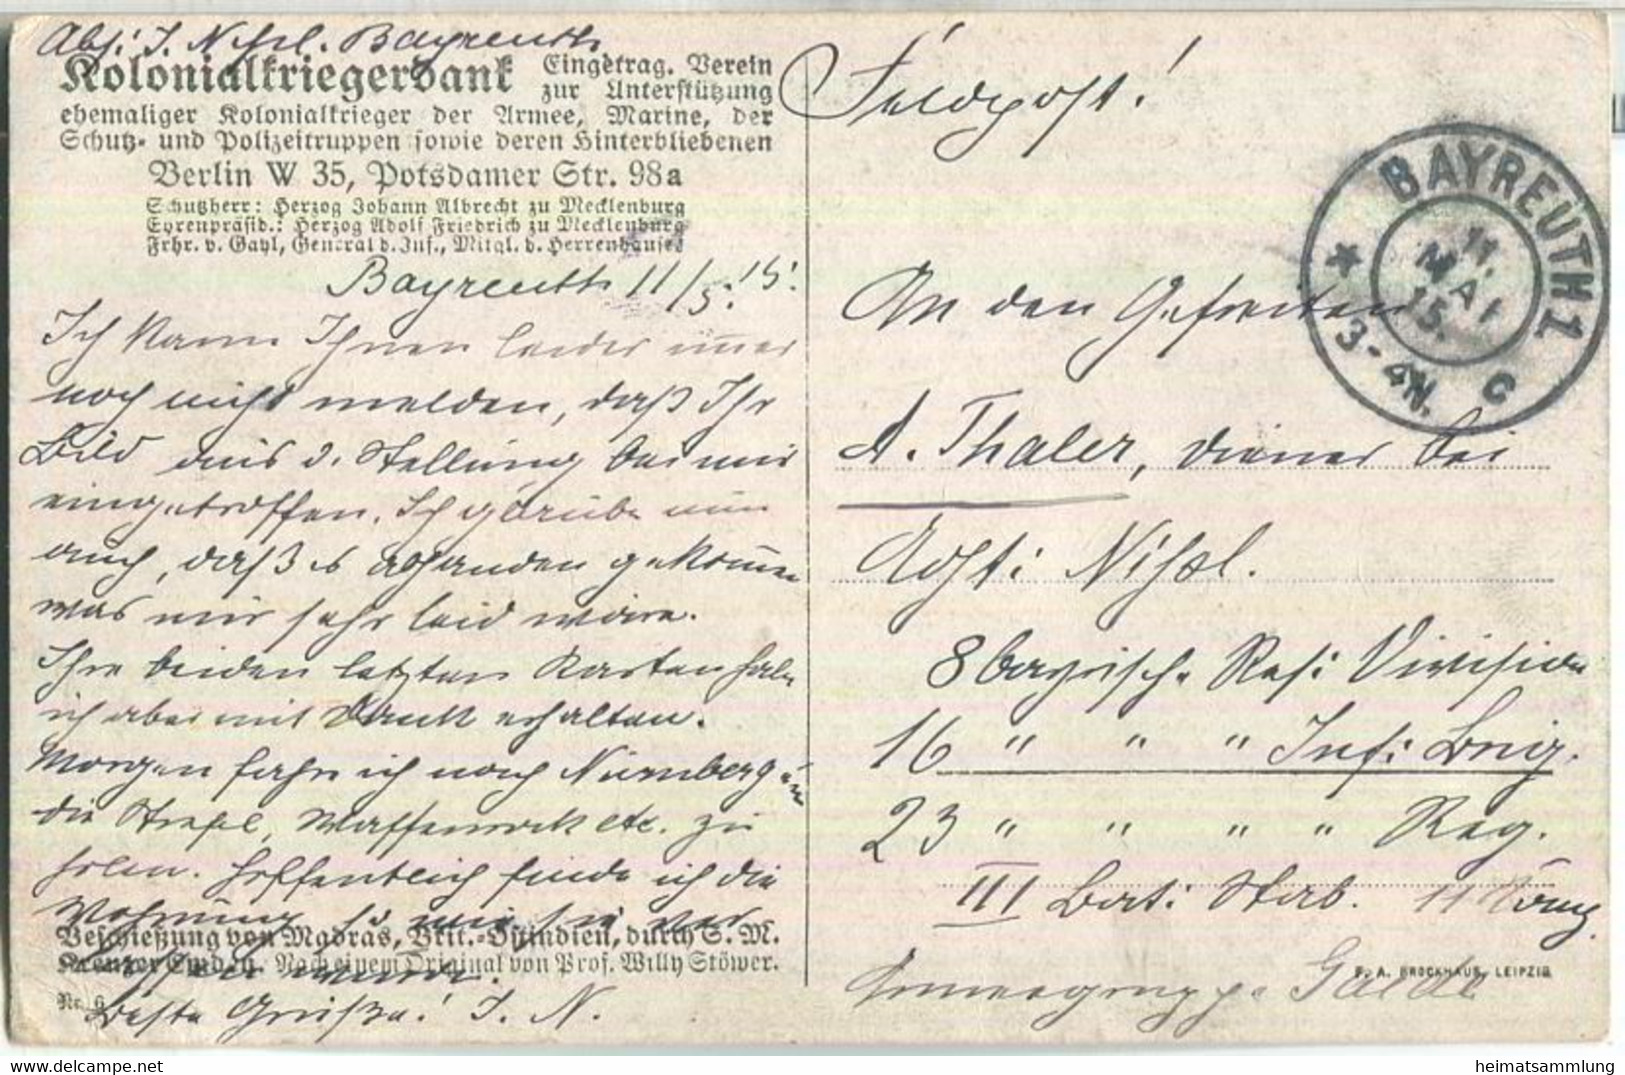 Abs: J. Nißl. Bayreuth
Kolonialkriegerdank Eingetrag. Verein
zur Unterstützung
ehemaliger Kolonialkrieger der Armee, Marine, der
Schutz- und Polizeitruppen sowie deren Hinterbliebenen
Berlin W 35, Potsdamer Str. 98a
Schutzherr: Herzog Johann Albrecht zu Mecklenburg
Ehrenpräsid.: Herzog Adolf Friedrich zu Mecklenburg
Frhr. v. Gayl, General d. Inf., Mitgl. d. Herrenhauses
Bayreuth 11/5. 15.
Ich kann Ihnen leider immer
noch nicht melden, daß Ihr
Bild aus d. Stellung bei mir
eingetroffen. Ich glaube nun
auch, daß es abhanden gekommen
was mir sehr leid wäre.
Ihre beiden letzten Karten habe
ich aber mit Dank erhalten.
Morgen fahre ich nach Nürnberg um
die Stiefel, Waffenrock etc. zu
holen. Hoffentlich finde ich die
Wohnung so wie sie
Beschießung von Madras, Brit.-Ostindien, durch S. M.
Kreuzer Emden. Nach einem Original von Prof. Willy Stöwer.
wurde.
Nr. 6
Beste Grüße! J. N.
Feldpost!
BAYREUTH 1
11.
MAI
15.
3-4N. C
An den Gefreiten
A. Thaler, Diener bei
Nißl.
8 bayrische Res: Division
16 " " " Inf: Brig.
23 " " " " Reg.
III Bat: Stab. 11
Armeegruppe Gaede
F. A. BROCKHAUS, LEIPZIG
heimatsammlung